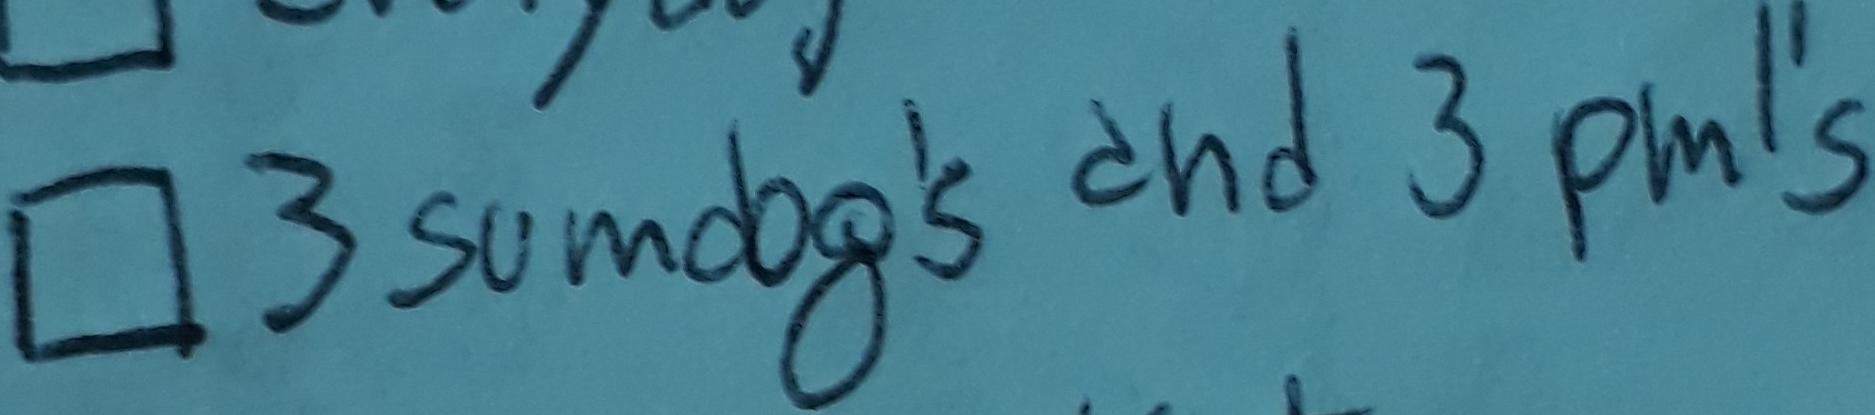 3 sumdog's and 3 pm1's